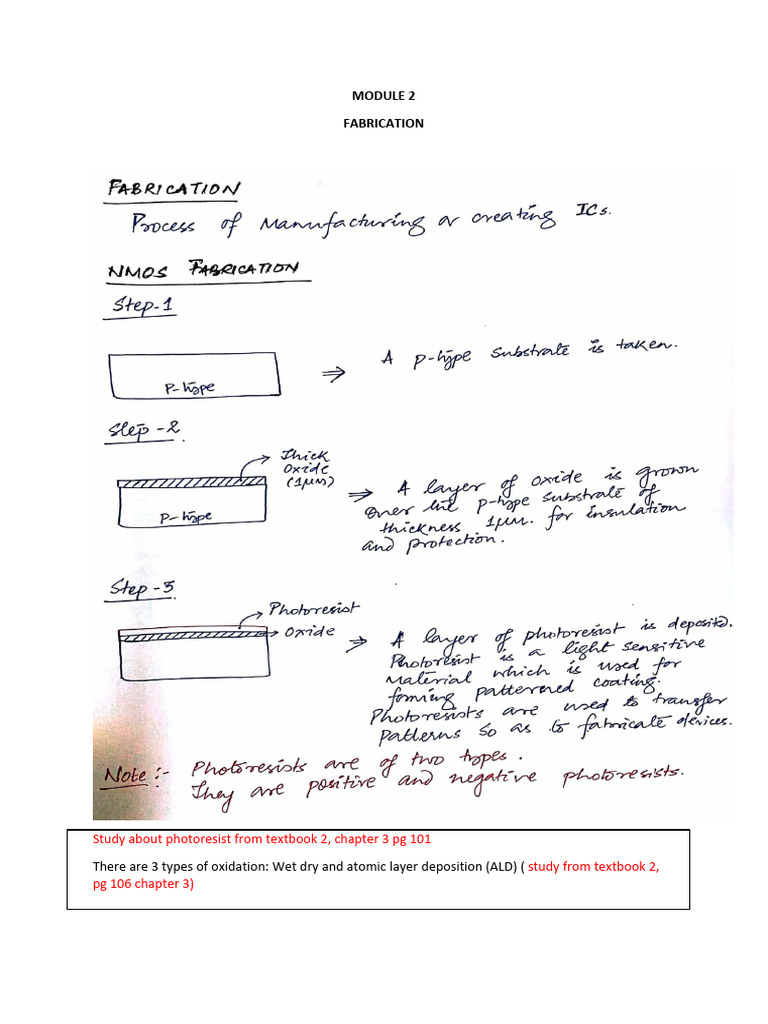 MODULE 2
FABRICATION
FABRICATION
Process of Manufacturing or creating ICs.
NMOS FABRICATION
Step-1
P-type
⇒ A p-type substrate is taken.
Step-2
Thick
oxide
(1μm)
P-type
⇒ A layer of oxide is grown
over the p-type substrate of
thickness 1μm. for insulation
and protection.
Step-3
Photoresist
oxide
⇒ A layer of photoresist is deposited.
Photoresist is a light sensitive
Material which is used for
forming patterned coating.
Photoresists are used to transfer
patterns so as to fabricate devices.
Note:- Photoresists are of two types.
They are positive and negative photoresists.
Study about photoresist from textbook 2, chapter 3 pg 101
There are 3 types of oxidation: Wet dry and atomic layer deposition (ALD) ( study from textbook 2,
pg 106 chapter 3)